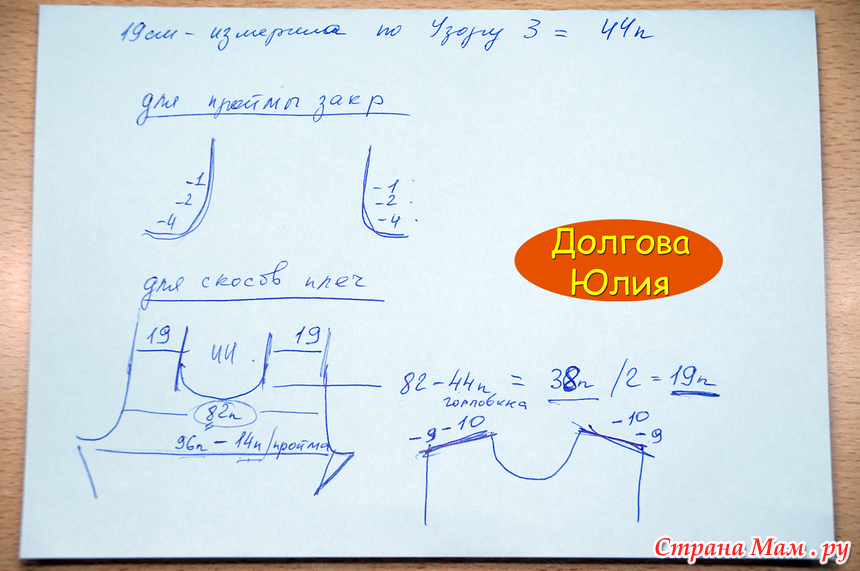 19см - измерила по Узору 3 = 44п
для проймы закр
-1
-2
-4
-1
-2
-4
для скосов плеч
19 44 19
82п
96п - 14п/пройма
82 - 44п = 38п /2 = 19п
горловина
-9 -10
-10
-9
Долгова
Юлия
Страна Мам.ру